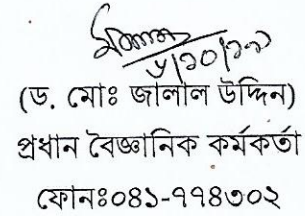 (ড. মোঃ জালাল উদ্দিন)
প্রধান বৈজ্ঞানিক কর্মকর্তা
ফোনঃ০৪১-৭৭৪৩০২